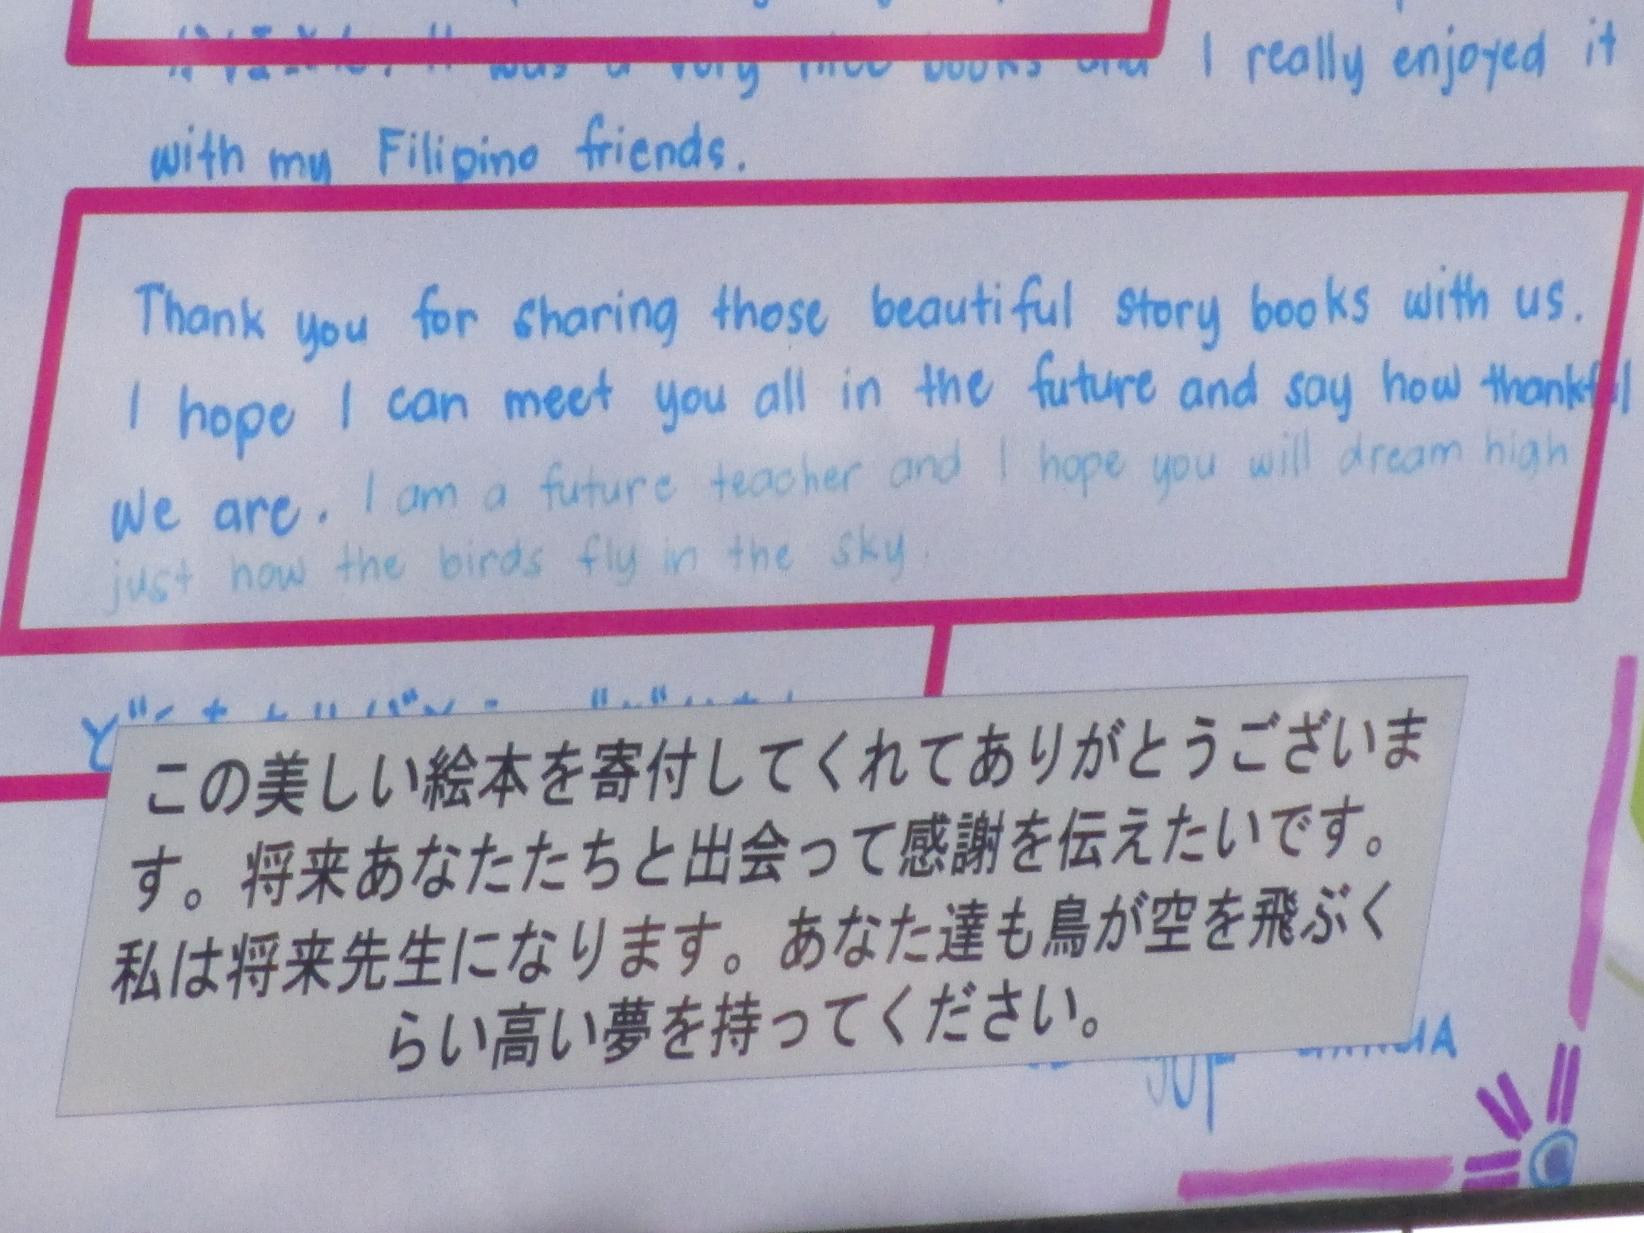 I really enjoyed it
with my Filipino friends.
Thank you for sharing those beautiful story books with us.
I hope I can meet you all in the future and say how thankful
we are. I am a future teacher and I hope you will dream high
just how the birds fly in the sky.
この美しい絵本を寄付してくれてありがとうございま
す。将来あなたたちと出会って感謝を伝えたいです。
私は将来先生になります。あなた達も鳥が空を飛ぶく
らい高い夢を持ってください。